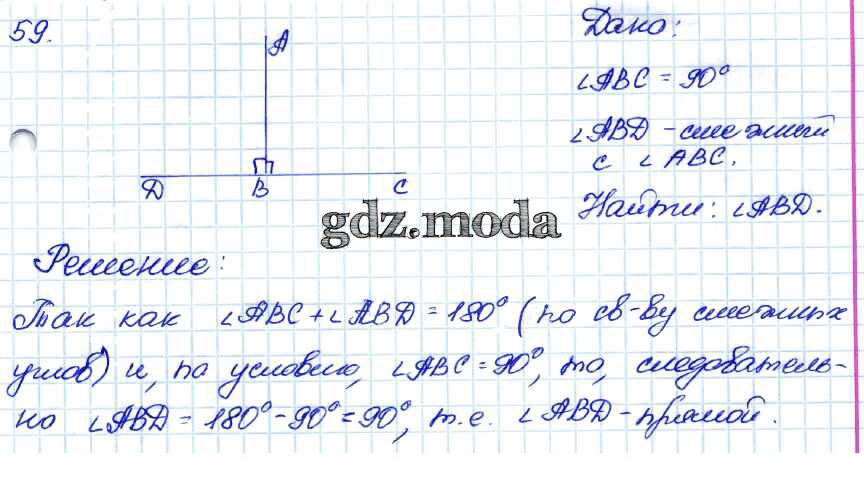 59.
A
D B C
Дано:
∠ABC = 90°
∠ABD - смежный
с ∠ABC.
Найти: ∠ABD.
gdz.moda
Решение:
Так как ∠ABC + ∠ABD = 180° (по св-ву смежных
углов) и, по условию, ∠ABC = 90°, то, следователь-
но ∠ABD = 180° - 90° = 90°, т.е. ∠ABD - прямой.